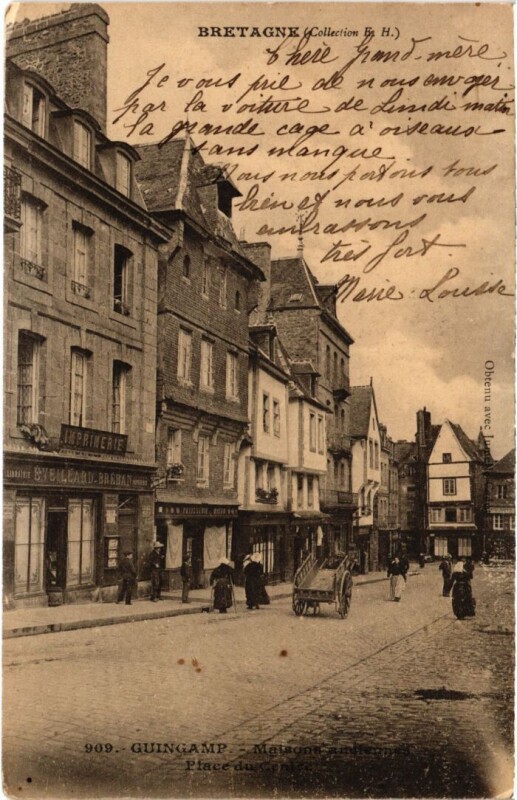 BRETAGNE (Collection E. H.)
Chère Grand-mère
Je vous prie de nous envoyer
par la voiture de Lundi matin
la grande cage à oiseaux
sans manque
Nous nous portons tous
bien et nous vous
embrassons
très fort.
Marie-Louise
Obtenu avec
IMPRIMERIE
LIBRAIRIE
909. - GUINGAMP. - Maisons anciennes
Place du Centre